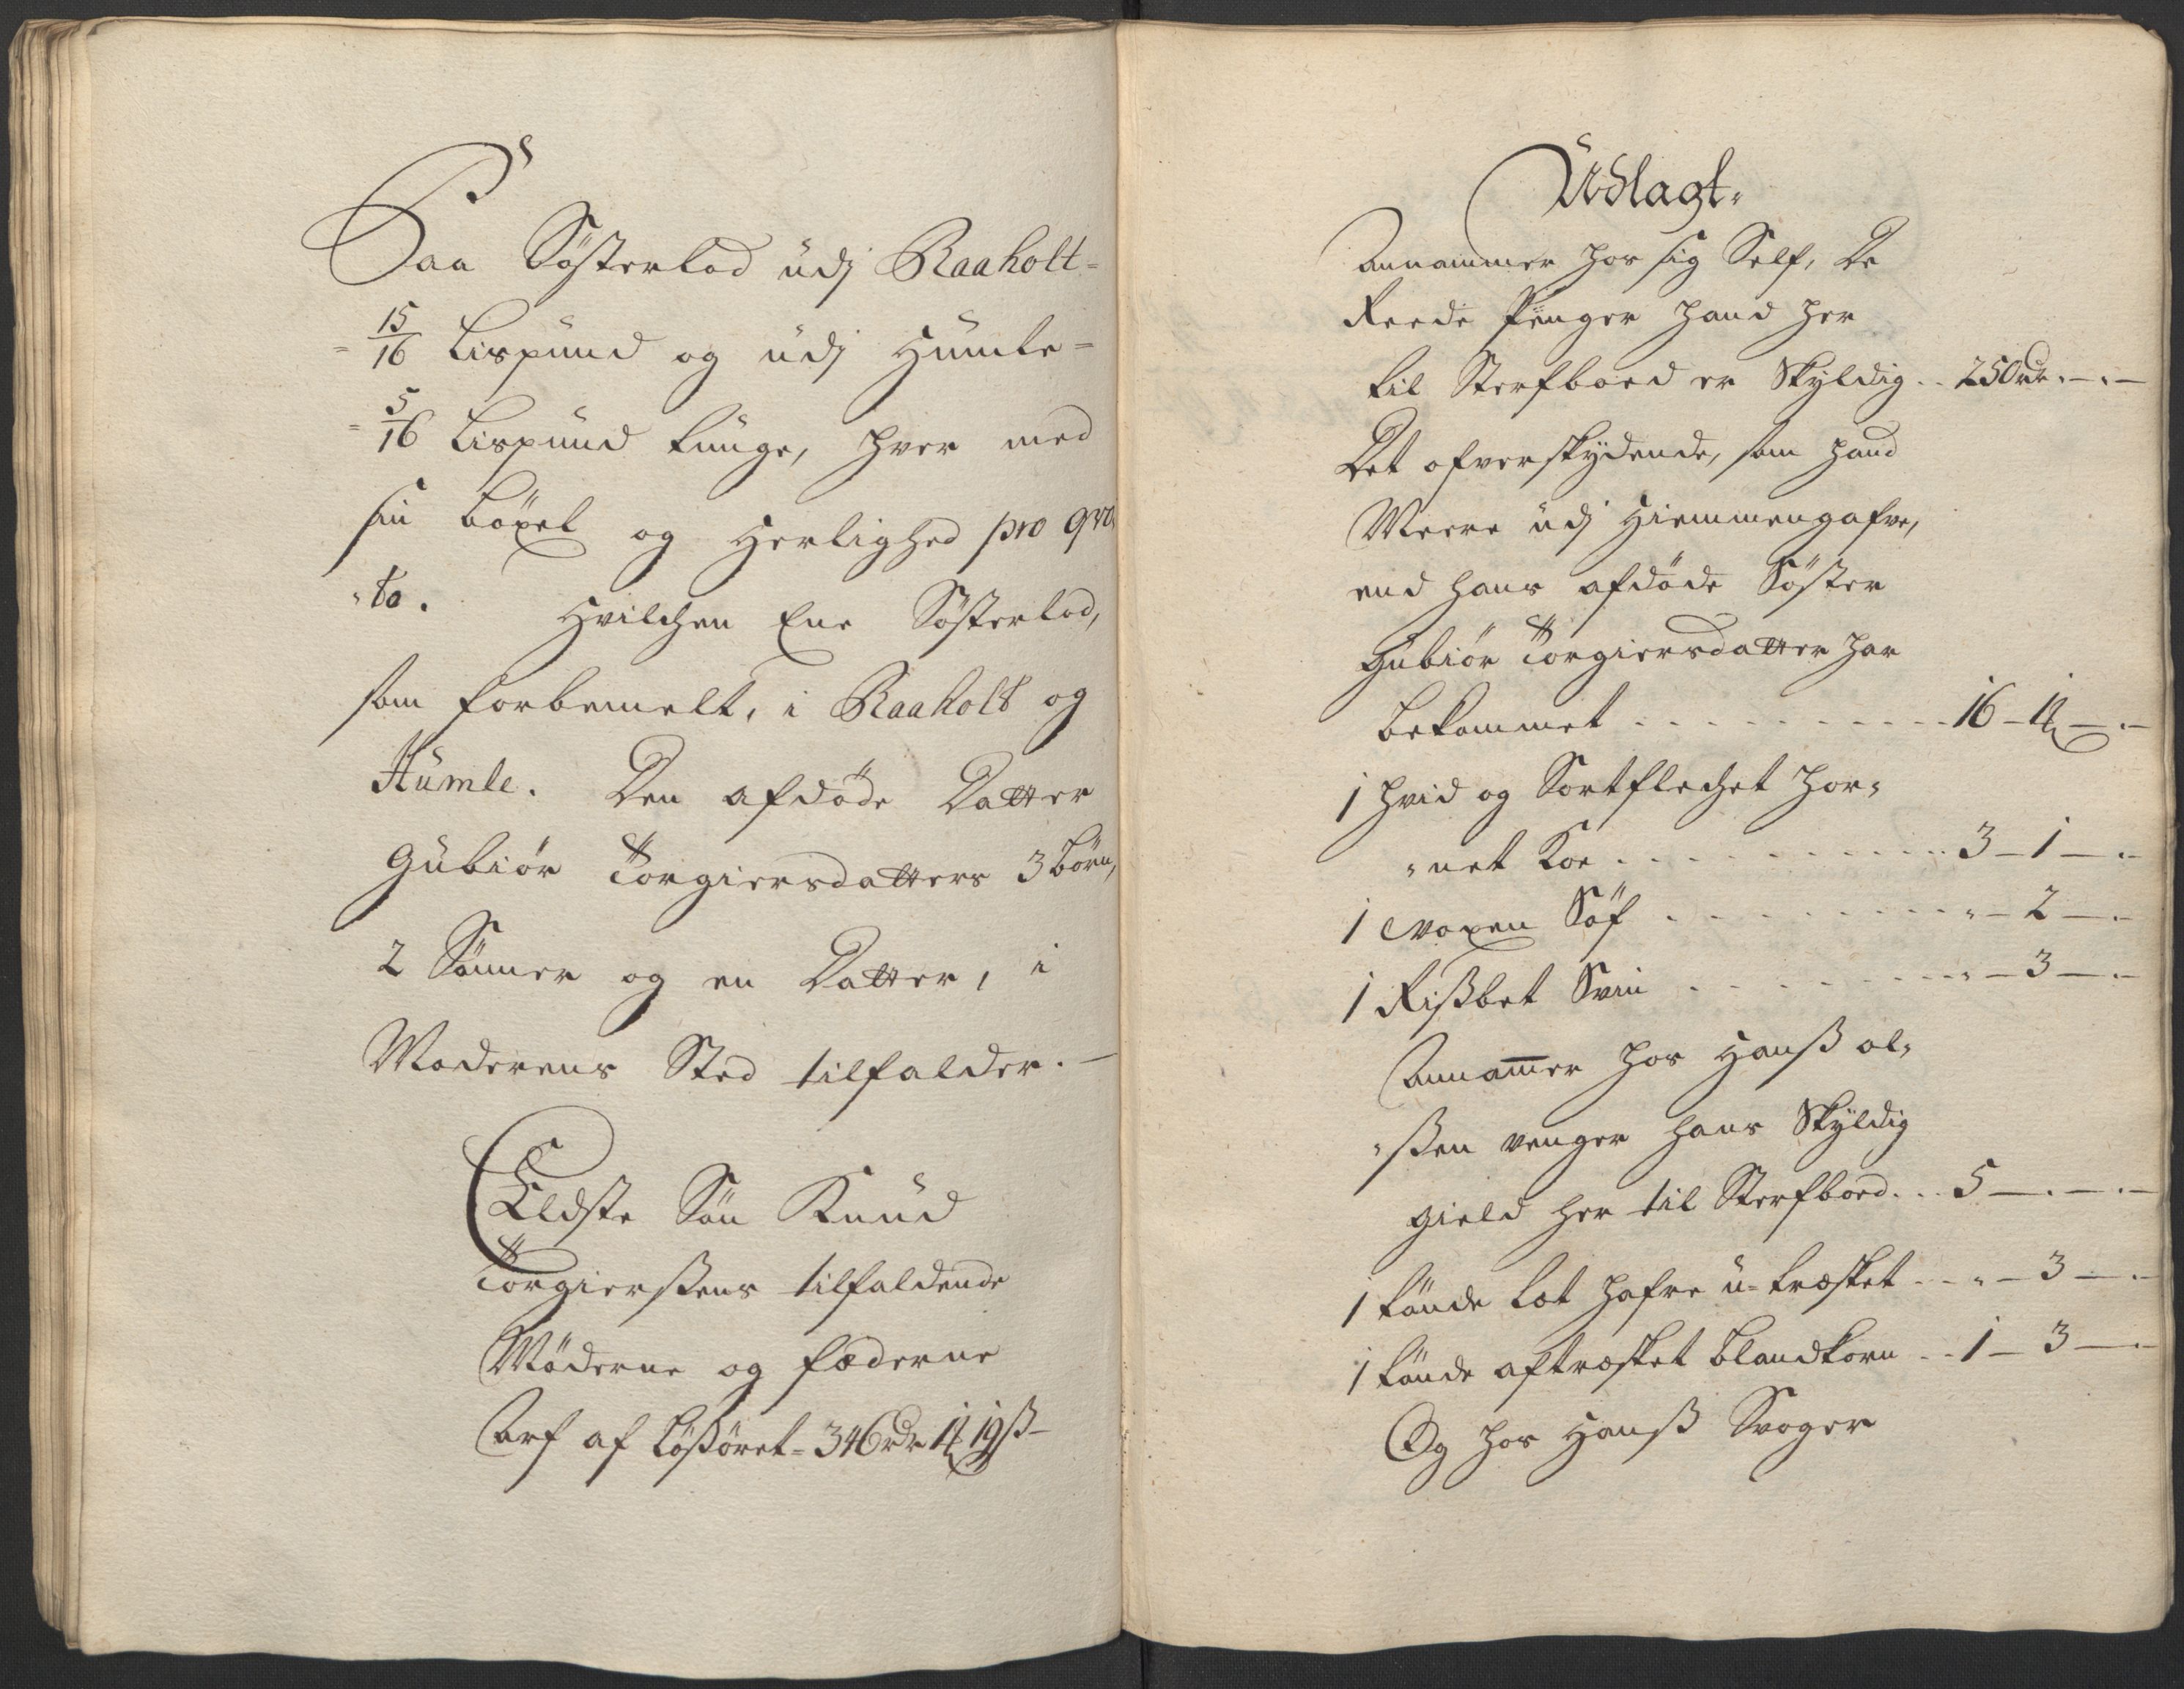 Paa Søsterlod udj Raaholt=
= 15/16 Lispund og udj Humle=
= 5/16 Lispund tunge, hver med
sin böxel og Herlighed pro qvo
"to. Hvilchen Ene Søsterlod,
som forbemelt, i Raaholt og
Humle. Den afdöde Datter
Gubiör Torgiersdatters 3 börn,
2 Sönner og en Datter, i
Moderens Sted tilfalder. –
Eldste Sön Knud
Torgierßens tilfaldende
Möderne og fæderne
Arf af Lößöret = 346 rdr 1 19 ß –
Udlagt.
Annammer hos sig Self, De
Reede Penger hand her
til Sterfboed er Skyldig .. 250 rdr. – . –
Det ofverskydende, som hand
Meere udj Hiemmengafve,
end hans afdöde Söster
Gubiör Torgiersdatter har
bekommet . . . . . . 16 – 1 – . –
1 hvid og Sortflechet hor„
„net Koe . . . . . . 3 – 1 – . –
1 voxen Söf . . . . . . „ – 2 – . –
1 Rißbet Svin . . . . . . „ – 3 – . –
Annam̄er hos Hanß ol„
„ßen venger hans Skyldig
gield her til Sterfboed . . . 5 – . – . –
1 tönde Lot hafre u=træsket . . „ – 3 – . –
1 tönde aftræsket blandkorn . . 1 – 3 – . –
Og hos Hanß Svoger